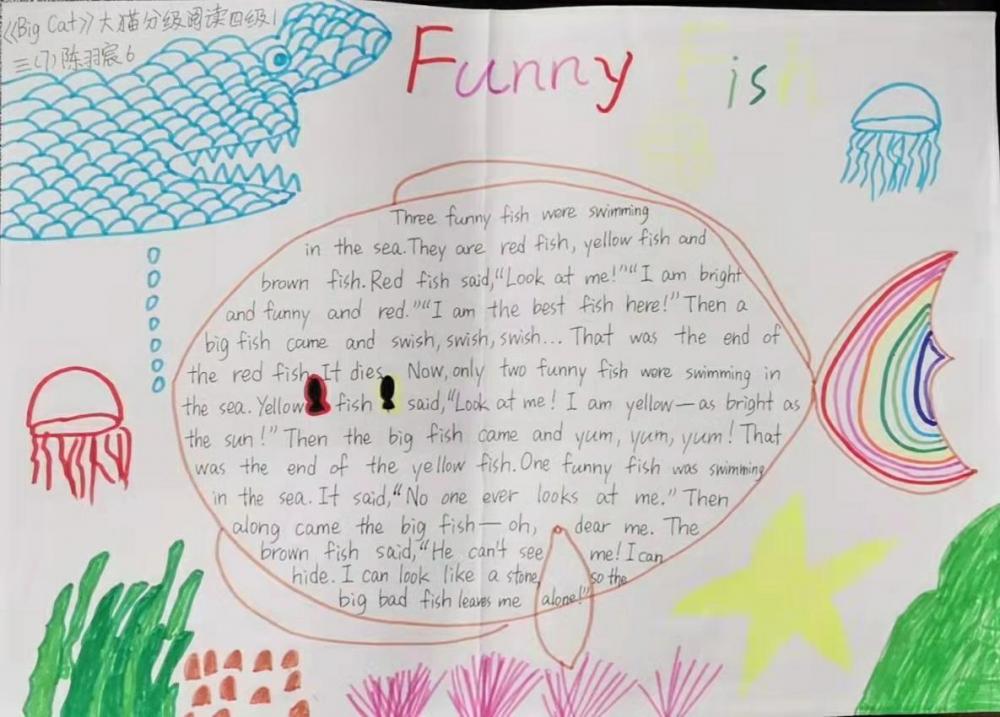 《Big Cat》大猫分级阅读四级1
三(7)陈羽宸6
Funny Fish
Three funny fish were swimming
in the sea. They are red fish, yellow fish and
brown fish. Red fish said, "Look at me!" "I am bright
and funny and red." "I am the best fish here!" Then a
big fish came and swish, swish, swish... That was the end of
the red fish. It dies. Now, only two funny fish were swimming in
the sea. Yellow fish said, "Look at me! I am yellow — as bright as
the sun!" Then the big fish came and yum, yum, yum! That
was the end of the yellow fish. One funny fish was swimming
in the sea. It said, "No one ever looks at me." Then
along came the big fish — oh, dear me. The
brown fish said, "He can't see me! I can
hide. I can look like a stone, so the
big bad fish leaves me alone!"